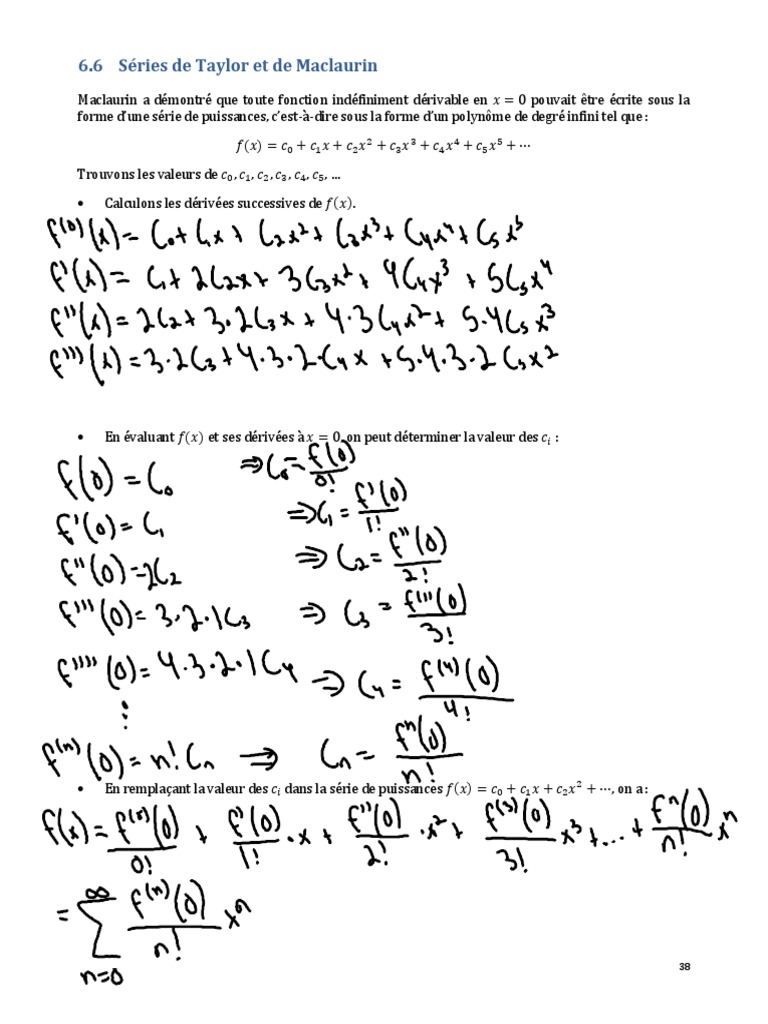 6.6 Séries de Taylor et de Maclaurin
Maclaurin a démontré que toute fonction indéfiniment dérivable en x = 0 pouvait être écrite sous la
forme d'une série de puissances, c'est-à-dire sous la forme d'un polynôme de degré infini tel que :
f(x) = c₀ + c₁x + c₂x² + c₃x³ + c₄x⁴ + c₅x⁵ + ⋯
Trouvons les valeurs de c₀, c₁, c₂, c₃, c₄, c₅, ...
• Calculons les dérivées successives de f(x).
f⁽⁰⁾(x) = C₀ + C₁x + C₂x² + C₃x³ + C₄x⁴ + C₅x⁵
f'(x) = C₁ + 2C₂x + 3C₃x² + 4C₄x³ + 5C₅x⁴
f''(x) = 2C₂ + 3·2C₃x + 4·3C₄x² + 5·4C₅x³
f'''(x) = 3·2C₃ + 4·3·2·C₄x + 5·4·3·2C₅x²
• En évaluant f(x) et ses dérivées à x = 0, on peut déterminer la valeur des cᵢ :
f(0) = C₀ ⇒ C₀ = f(0)/0!
f'(0) = C₁ ⇒ C₁ = f'(0)/1!
f''(0) = 2C₂ ⇒ C₂ = f''(0)/2!
f'''(0) = 3·2·1C₃ ⇒ C₃ = f'''(0)/3!
f''''(0) = 4·3·2·1C₄ ⇒ C₄ = f⁽⁴⁾(0)/4!
⋮
f⁽ⁿ⁾(0) = n!Cₙ ⇒ Cₙ = fⁿ(0)/n!
• En remplaçant la valeur des cᵢ dans la série de puissances f(x) = c₀ + c₁x + c₂x² + ⋯, on a :
f(x) = f⁽⁰⁾(0)/0! + f'(0)/1! · x + f''(0)/2! · x² + f⁽³⁾(0)/3! x³ + ... + fⁿ(0)/n! xⁿ
= ∑ₙ₌₀^∞ f⁽ⁿ⁾(0)/n! xⁿ
38